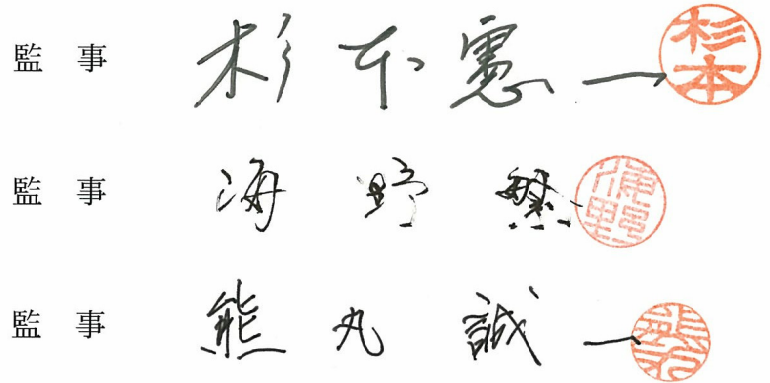 監 事 杉 本 憲 一 杉本
監 事 海 野 繁 海野
監 事 熊 丸 誠 一 熊丸